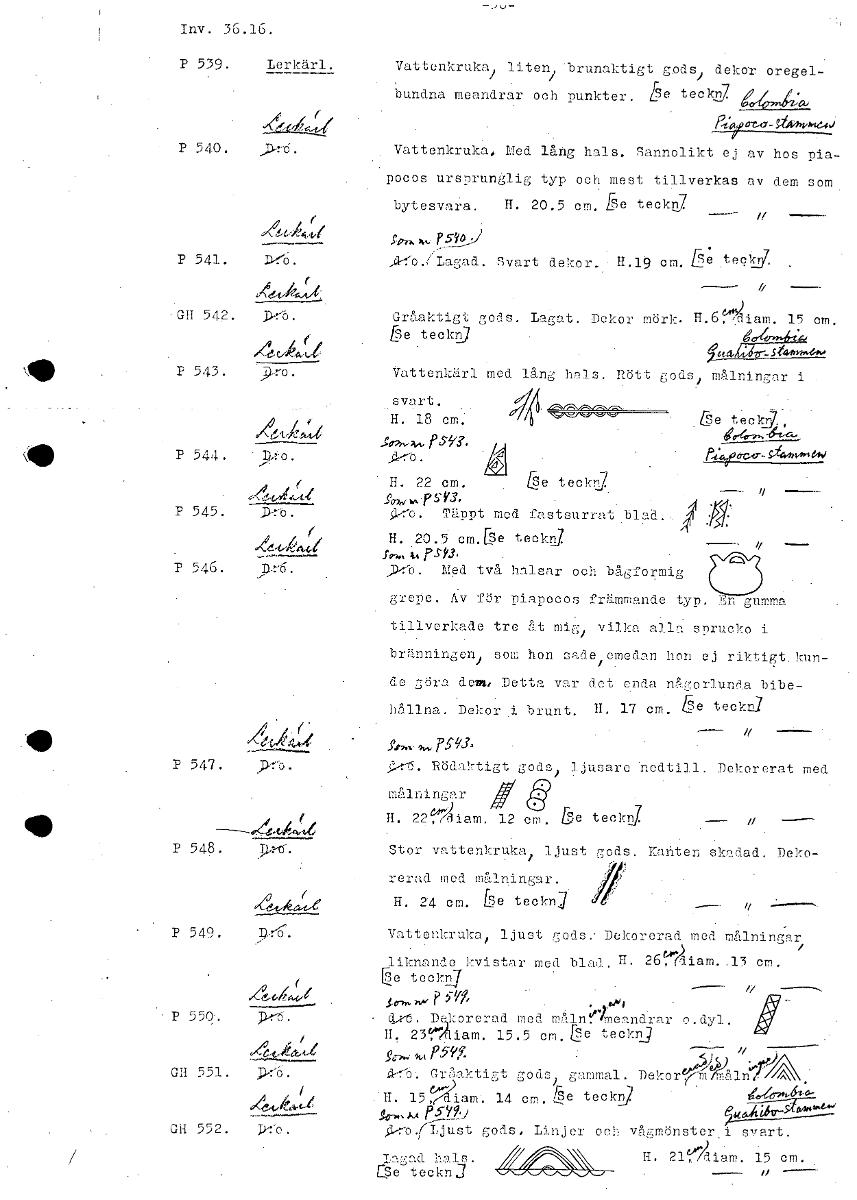 -56-
Inv. 36.16.
P 539. Lerkärl. Vattenkruka, liten, brunaktigt gods, dekor oregel-
bundna meandrar och punkter. [Se teckn]. Colombia
Lerkärl Piapoco-stammen
P 540. D:o. Vattenkruka. Med lång hals. Sannolikt ej av hos pia-
pocos ursprunglig typ och mest tillverkas av dem som
bytesvara. H. 20.5 cm. [Se teckn]
— " —
Lerkärl Som nr P540.)
P 541. D:o. d:o. Lagad. Svart dekor. H.19 cm. [Se teckn].
— " —
Lerkärl
GH 542. D:o. Gråaktigt gods. Lagat. Dekor mörk. H.6, cm/diam. 15 cm.
[Se teckn] Colombia
Lerkärl Guahibo-stammen
P 543. D:o. Vattenkärl med lång hals. Rött gods, målningar i
svart.
H. 18 cm. [Se teckn].
Lerkärl Som nr P543. Colombia
P 544. D:o. d:o. Piapoco-stammen
H. 22 cm. [Se teckn].
— " —
Lerkärl Som nr P543.
P 545. D:o. d:o. Täppt med fastsurrat blad.
H. 20.5 cm. [Se teckn].
— " —
Lerkärl Som nr P543.
P 546. D:o. D:o. Med två halsar och bågformig
grepe. Av för piapocos främmande typ. En gumma
tillverkade tre åt mig, vilka alla sprucko i
bränningen, som hon sade, emedan hon ej riktigt kun-
de göra dem. Detta var det enda någorlunda bibe-
hållna. Dekor i brunt. H. 17 cm. [Se teckn]
— " —
Lerkärl Som nr P543.
P 547. D:o. d:o. Rödaktigt gods, ljusare nedtill. Dekorerat med
målningar
H. 22, cm/diam. 12 cm. [Se teckn]. — " —
Lerkärl
P 548. D:o. Stor vattenkruka, ljust gods. Kanten skadad. Deko-
rerad med målningar.
H. 24 cm. [Se teckn]
Lerkärl — " —
P 549. D:o. Vattenkruka, ljust gods. Dekorerad med målningar
liknande kvistar med blad. H. 26, cm/diam. 13 cm.
[Se teckn]
— " —
Lerkärl Som nr P 549.
P 550. D:o. d:o. Dekorerad med måln.ingar, meandrar o.dyl.
H. 23, cm/diam. 15.5 cm. [Se teckn]
— " —
Lerkärl Som nr P549.
GH 551. D:o. d:o. Gråaktigt gods, gammal. Dekorerad m/ed måln.ingar
H. 15, cm/diam. 14 cm. [Se teckn] Colombia
Lerkärl Som nr P549.) Guahibo-stammen
GH 552. D:o. d:o. Ljust gods. Linjer och vågmönster i svart.
Lagad hals. H. 21, cm/diam. 15 cm.
[Se teckn.] — " —